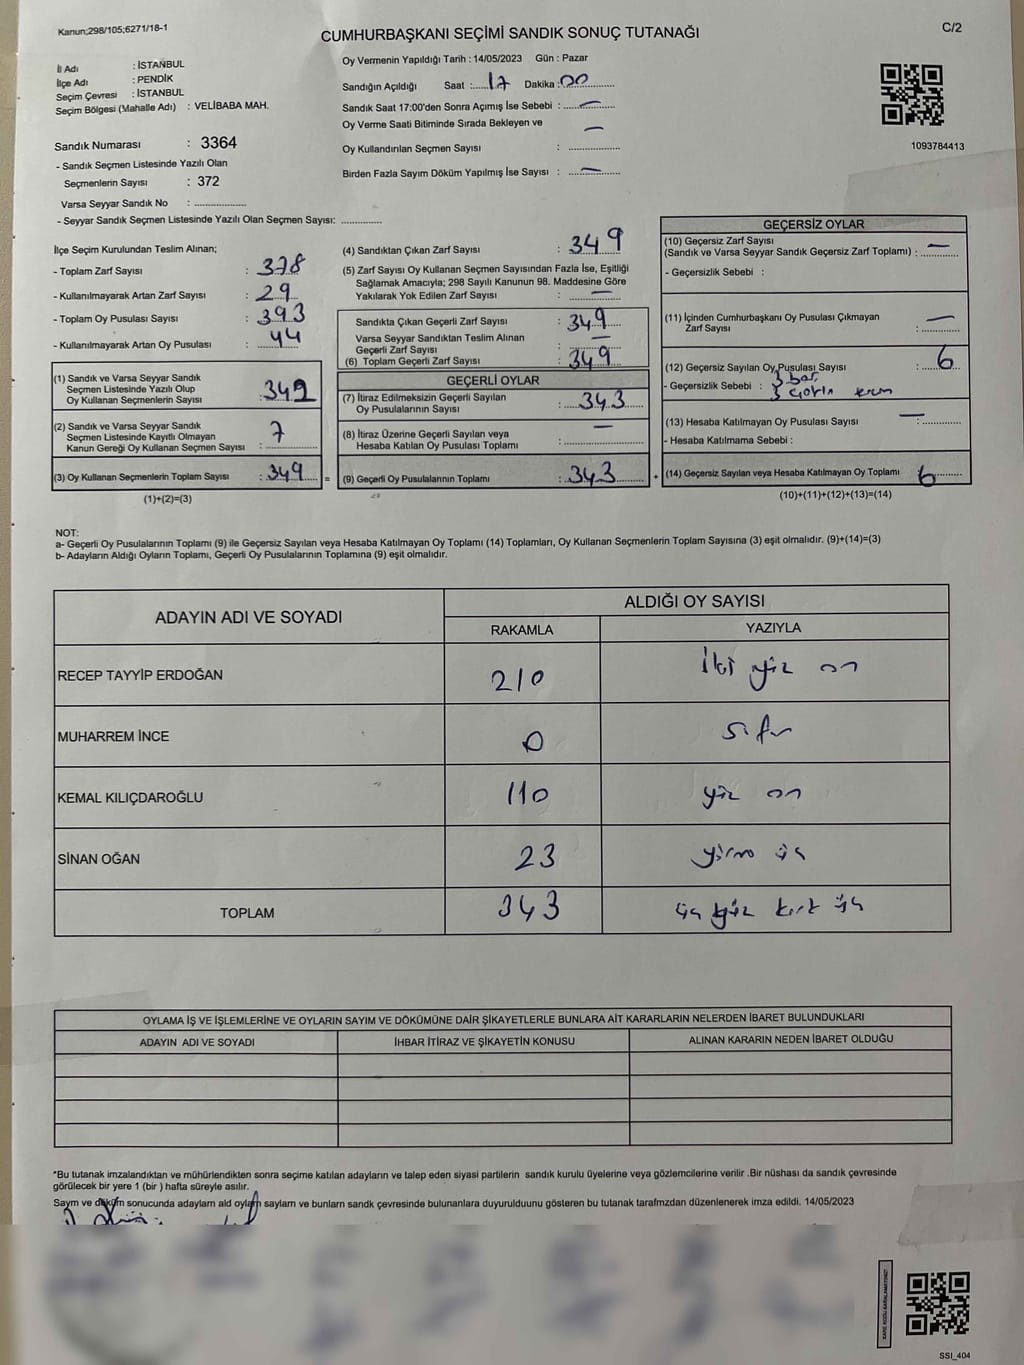 Kanun;298/105;6271/18-1
CUMHURBAŞKANI SEÇİMİ SANDIK SONUÇ TUTANAĞI
C/2
İl Adı : İSTANBUL
İlçe Adı : PENDİK
Seçim Çevresi : İSTANBUL
Seçim Bölgesi (Mahalle Adı) : VELİBABA MAH.
Sandık Numarası : 3364
- Sandık Seçmen Listesinde Yazılı Olan
Seçmenlerin Sayısı : 372
Varsa Seyyar Sandık No : ..................
- Seyyar Sandık Seçmen Listesinde Yazılı Olan Seçmen Sayısı: ..............
Oy Vermenin Yapıldığı Tarih : 14/05/2023 Gün : Pazar
Sandığın Açıldığı Saat :......17 Dakika :00
Sandık Saat 17:00'den Sonra Açımış İse Sebebi : —
Oy Verme Saati Bitiminde Sırada Bekleyen ve —
Oy Kullandırılan Seçmen Sayısı : ..................
Birden Fazla Sayım Döküm Yapılmış İse Sayısı : —
1093784413
İlçe Seçim Kurulundan Teslim Alınan;
- Toplam Zarf Sayısı : 378
- Kullanılmayarak Artan Zarf Sayısı : 29
- Toplam Oy Pusulası Sayısı : 393
- Kullanılmayarak Artan Oy Pusulası : 44
(1) Sandık ve Varsa Seyyar Sandık
Seçmen Listesinde Yazılı Olup
Oy Kullanan Seçmenlerin Sayısı : 342
(2) Sandık ve Varsa Seyyar Sandık
Seçmen Listesinde Kayıtlı Olmayan
Kanun Gereği Oy Kullanan Seçmen Sayısı : 7
(3) Oy Kullanan Seçmenlerin Toplam Sayısı : 349 =
(1)+(2)=(3)
(4) Sandıktan Çıkan Zarf Sayısı : 349
(5) Zarf Sayısı Oy Kullanan Seçmen Sayısından Fazla İse, Eşitliği
Sağlamak Amacıyla; 298 Sayılı Kanunun 98. Maddesine Göre
Yakılarak Yok Edilen Zarf Sayısı : —
Sandıkta Çıkan Geçerli Zarf Sayısı : 349
Varsa Seyyar Sandıktan Teslim Alınan
Geçerli Zarf Sayısı : —
(6) Toplam Geçerli Zarf Sayısı : 349
GEÇERLİ OYLAR
(7) İtiraz Edilmeksizin Geçerli Sayılan
Oy Pusulalarının Sayısı : 343
(8) İtiraz Üzerine Geçerli Sayılan veya
Hesaba Katılan Oy Pusulası Toplamı : —
(9) Geçerli Oy Pusulalarının Toplamı : 343 +
GEÇERSİZ OYLAR
(10) Geçersiz Zarf Sayısı
(Sandık ve Varsa Seyyar Sandık Geçersiz Zarf Toplamı) : —
- Geçersizlik Sebebi :
(11) İçinden Cumhurbaşkanı Oy Pusulası Çıkmayan
Zarf Sayısı : —
(12) Geçersiz Sayılan Oy Pusulası Sayısı : 6
- Geçersizlik Sebebi : 3 boş
3
(13) Hesaba Katılmayan Oy Pusulası Sayısı : —
- Hesaba Katılmama Sebebi :
(14) Geçersiz Sayılan veya Hesaba Katılmayan Oy Toplamı 6
(10)+(11)+(12)+(13)=(14)
NOT:
a- Geçerli Oy Pusulalarının Toplamı (9) ile Geçersiz Sayılan veya Hesaba Katılmayan Oy Toplamı (14) Toplamları, Oy Kullanan Seçmenlerin Toplam Sayısına (3) eşit olmalıdır. (9)+(14)=(3)
b- Adayların Aldığı Oyların Toplamı, Geçerli Oy Pusulalarının Toplamına (9) eşit olmalıdır.
ADAYIN ADI VE SOYADI
ALDIĞI OY SAYISI
RAKAMLA YAZIYLA
RECEP TAYYİP ERDOĞAN 210 İki yüz on
MUHARREM İNCE 0 sıfır
KEMAL KILIÇDAROĞLU 110 yüz on
SİNAN OĞAN 23 yirmi üç
TOPLAM 343 üç yüz kırk üç
OYLAMA İŞ VE İŞLEMLERİNE VE OYLARIN SAYIM VE DÖKÜMÜNE DAİR ŞİKAYETLERLE BUNLARA AİT KARARLARIN NELERDEN İBARET BULUNDUKLARI
ADAYIN ADI VE SOYADI İHBAR İTİRAZ VE ŞİKAYETİN KONUSU ALINAN KARARIN NEDEN İBARET OLDUĞU
*Bu tutanak imzalandıktan ve mühürlendikten sonra seçime katılan adayların ve talep eden siyasi partilerin sandık kurulu üyelerine veya gözlemcilerine verilir .Bir nüshası da sandık çevresinde
görülecek bir yere 1 (bir ) hafta süreyle asılır.
Sayım ve döküm sonucunda adaylam ald oylam saylam ve bunlarn sandk çevresinde bulunanlara duyurulduunu gösteren bu tutanak tarafmzdan düzenlenerek imza edildi. 14/05/2023
SSI_404